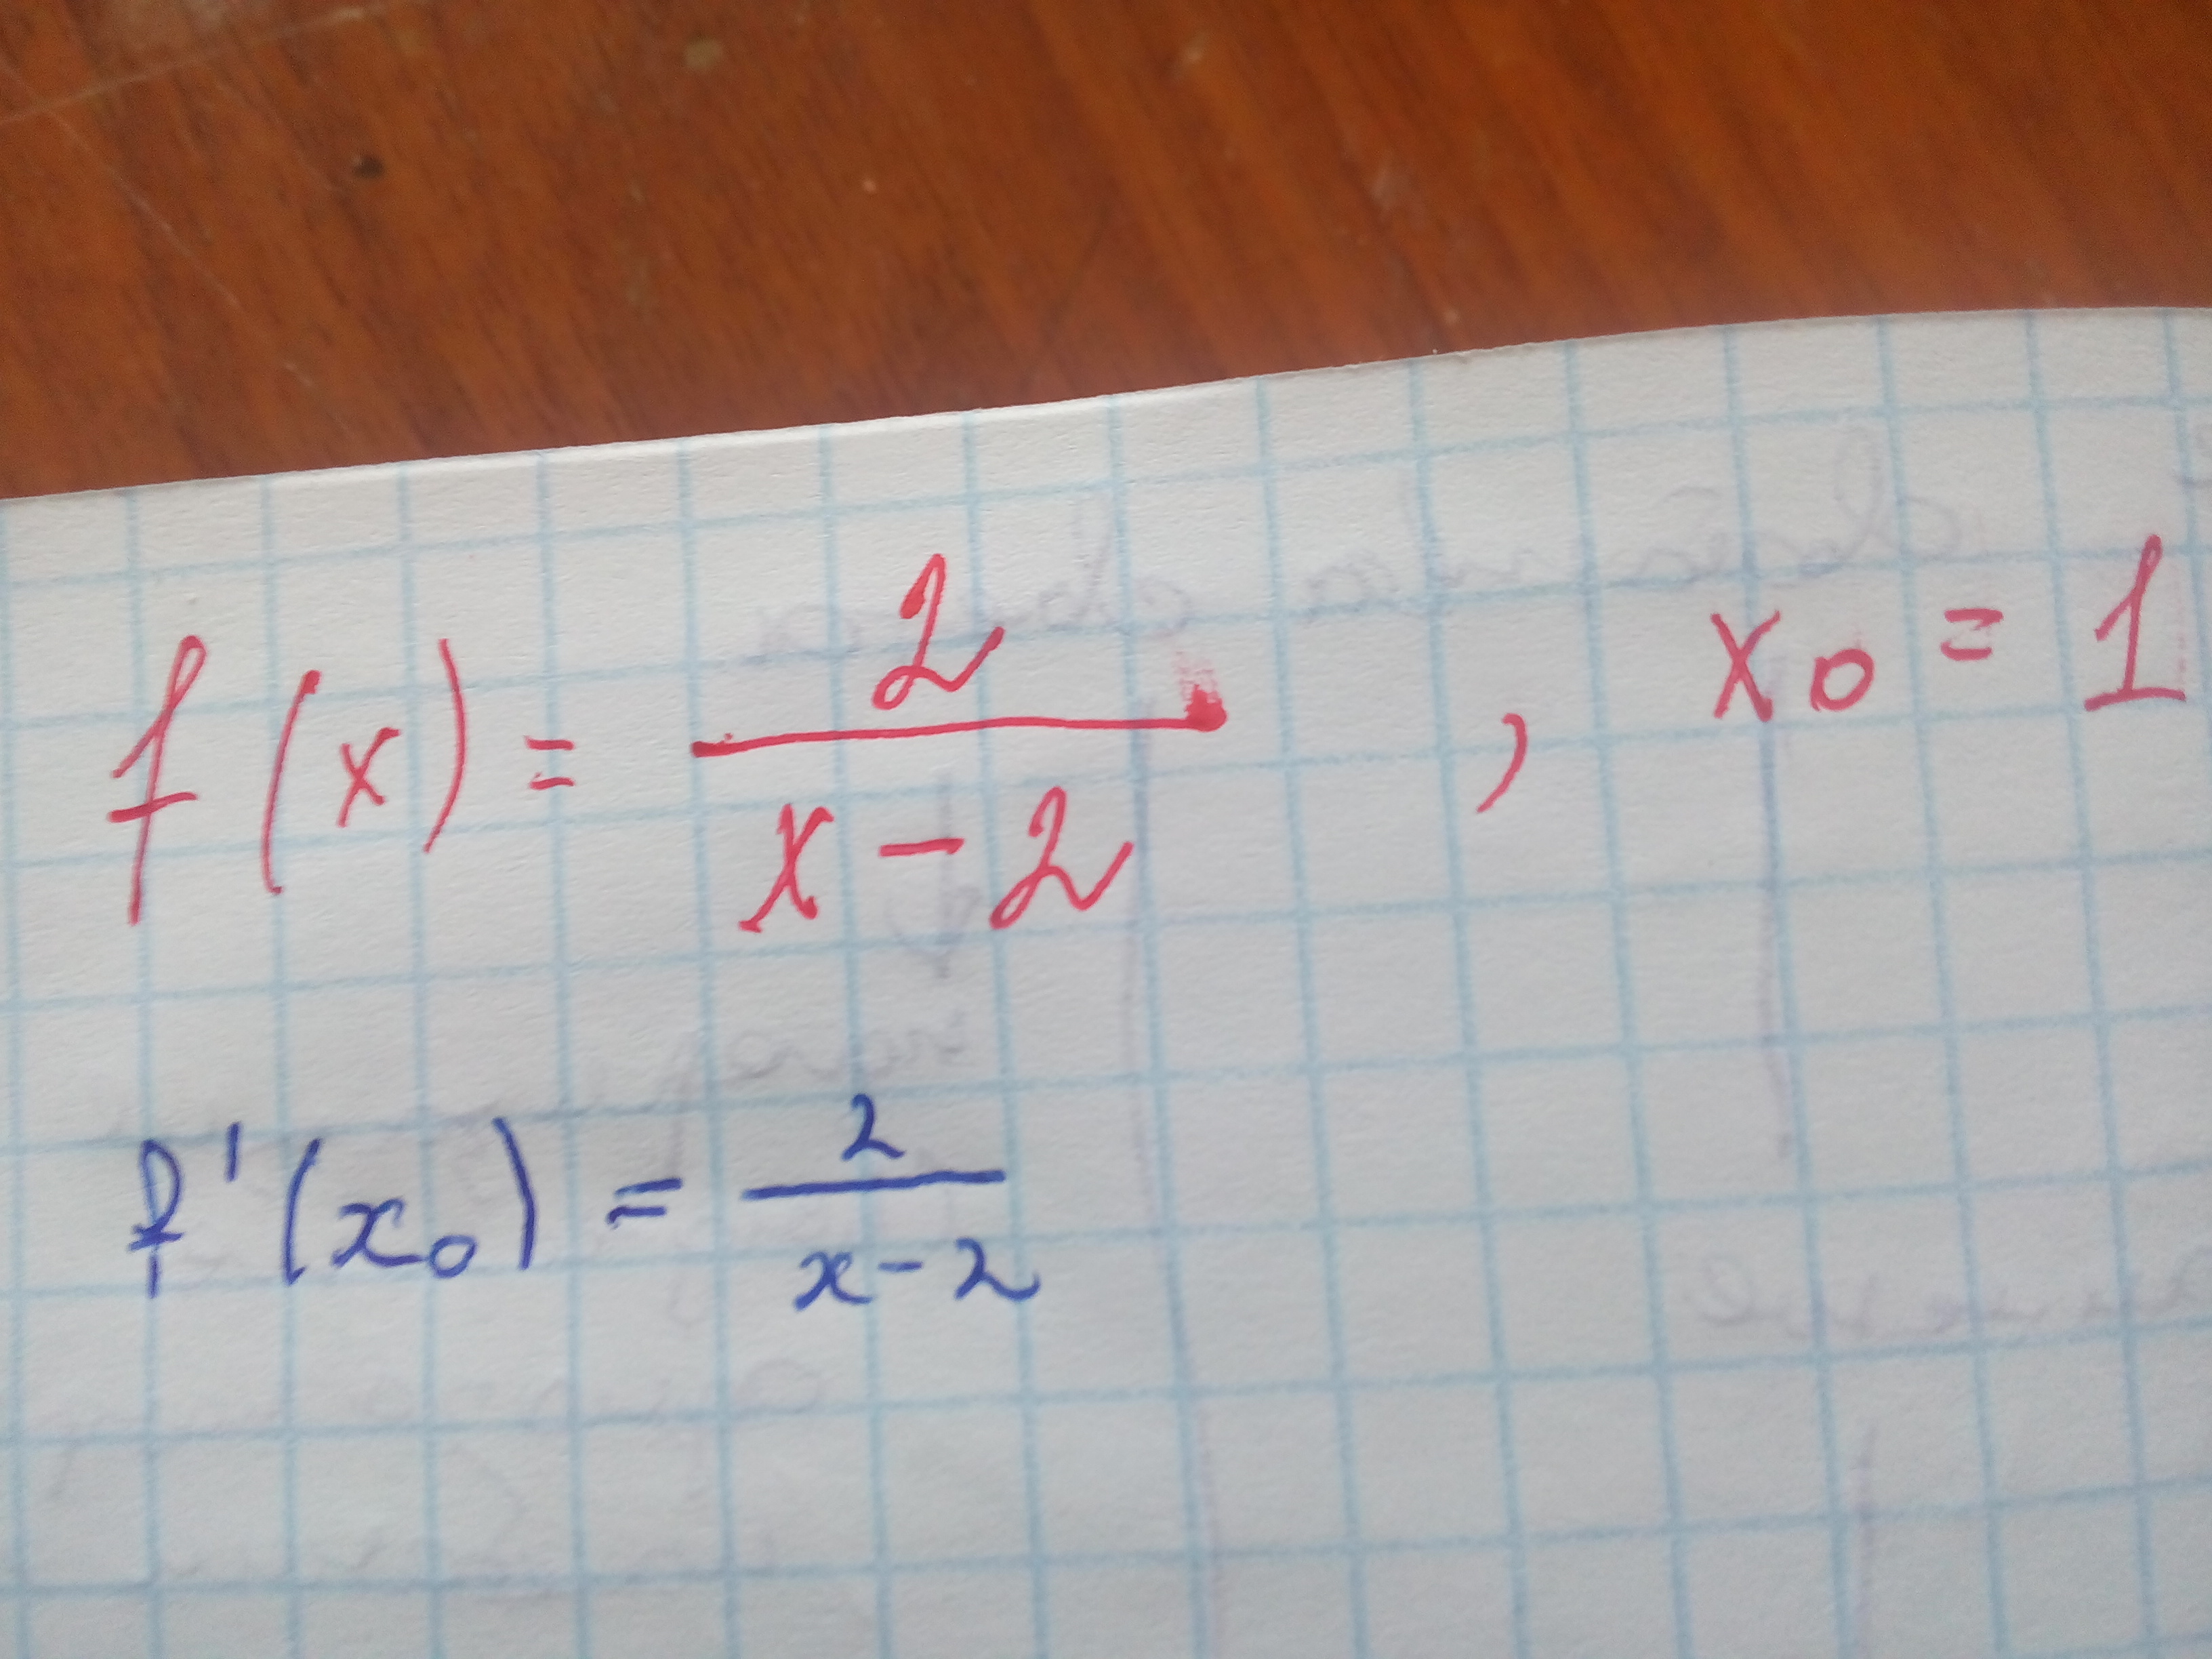 f(x) = 2/(x-2) , x₀ = 1
f'(x₀) = 2/(x-2)